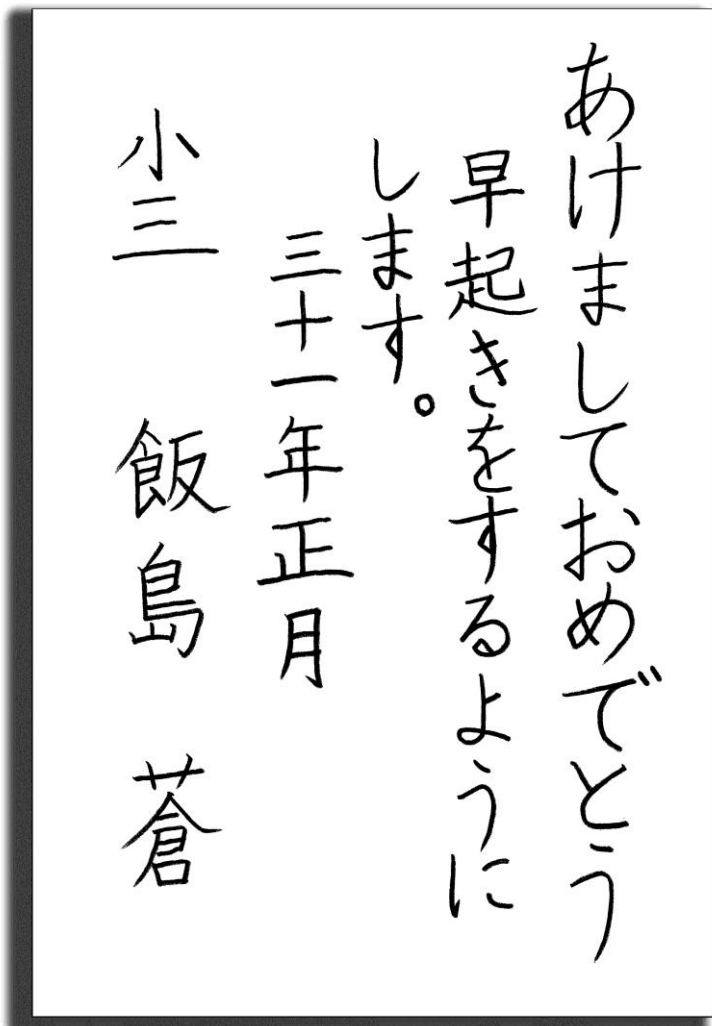 あけましておめでとう
早起きをするように
します。
三十一年正月
小三 飯島 蒼